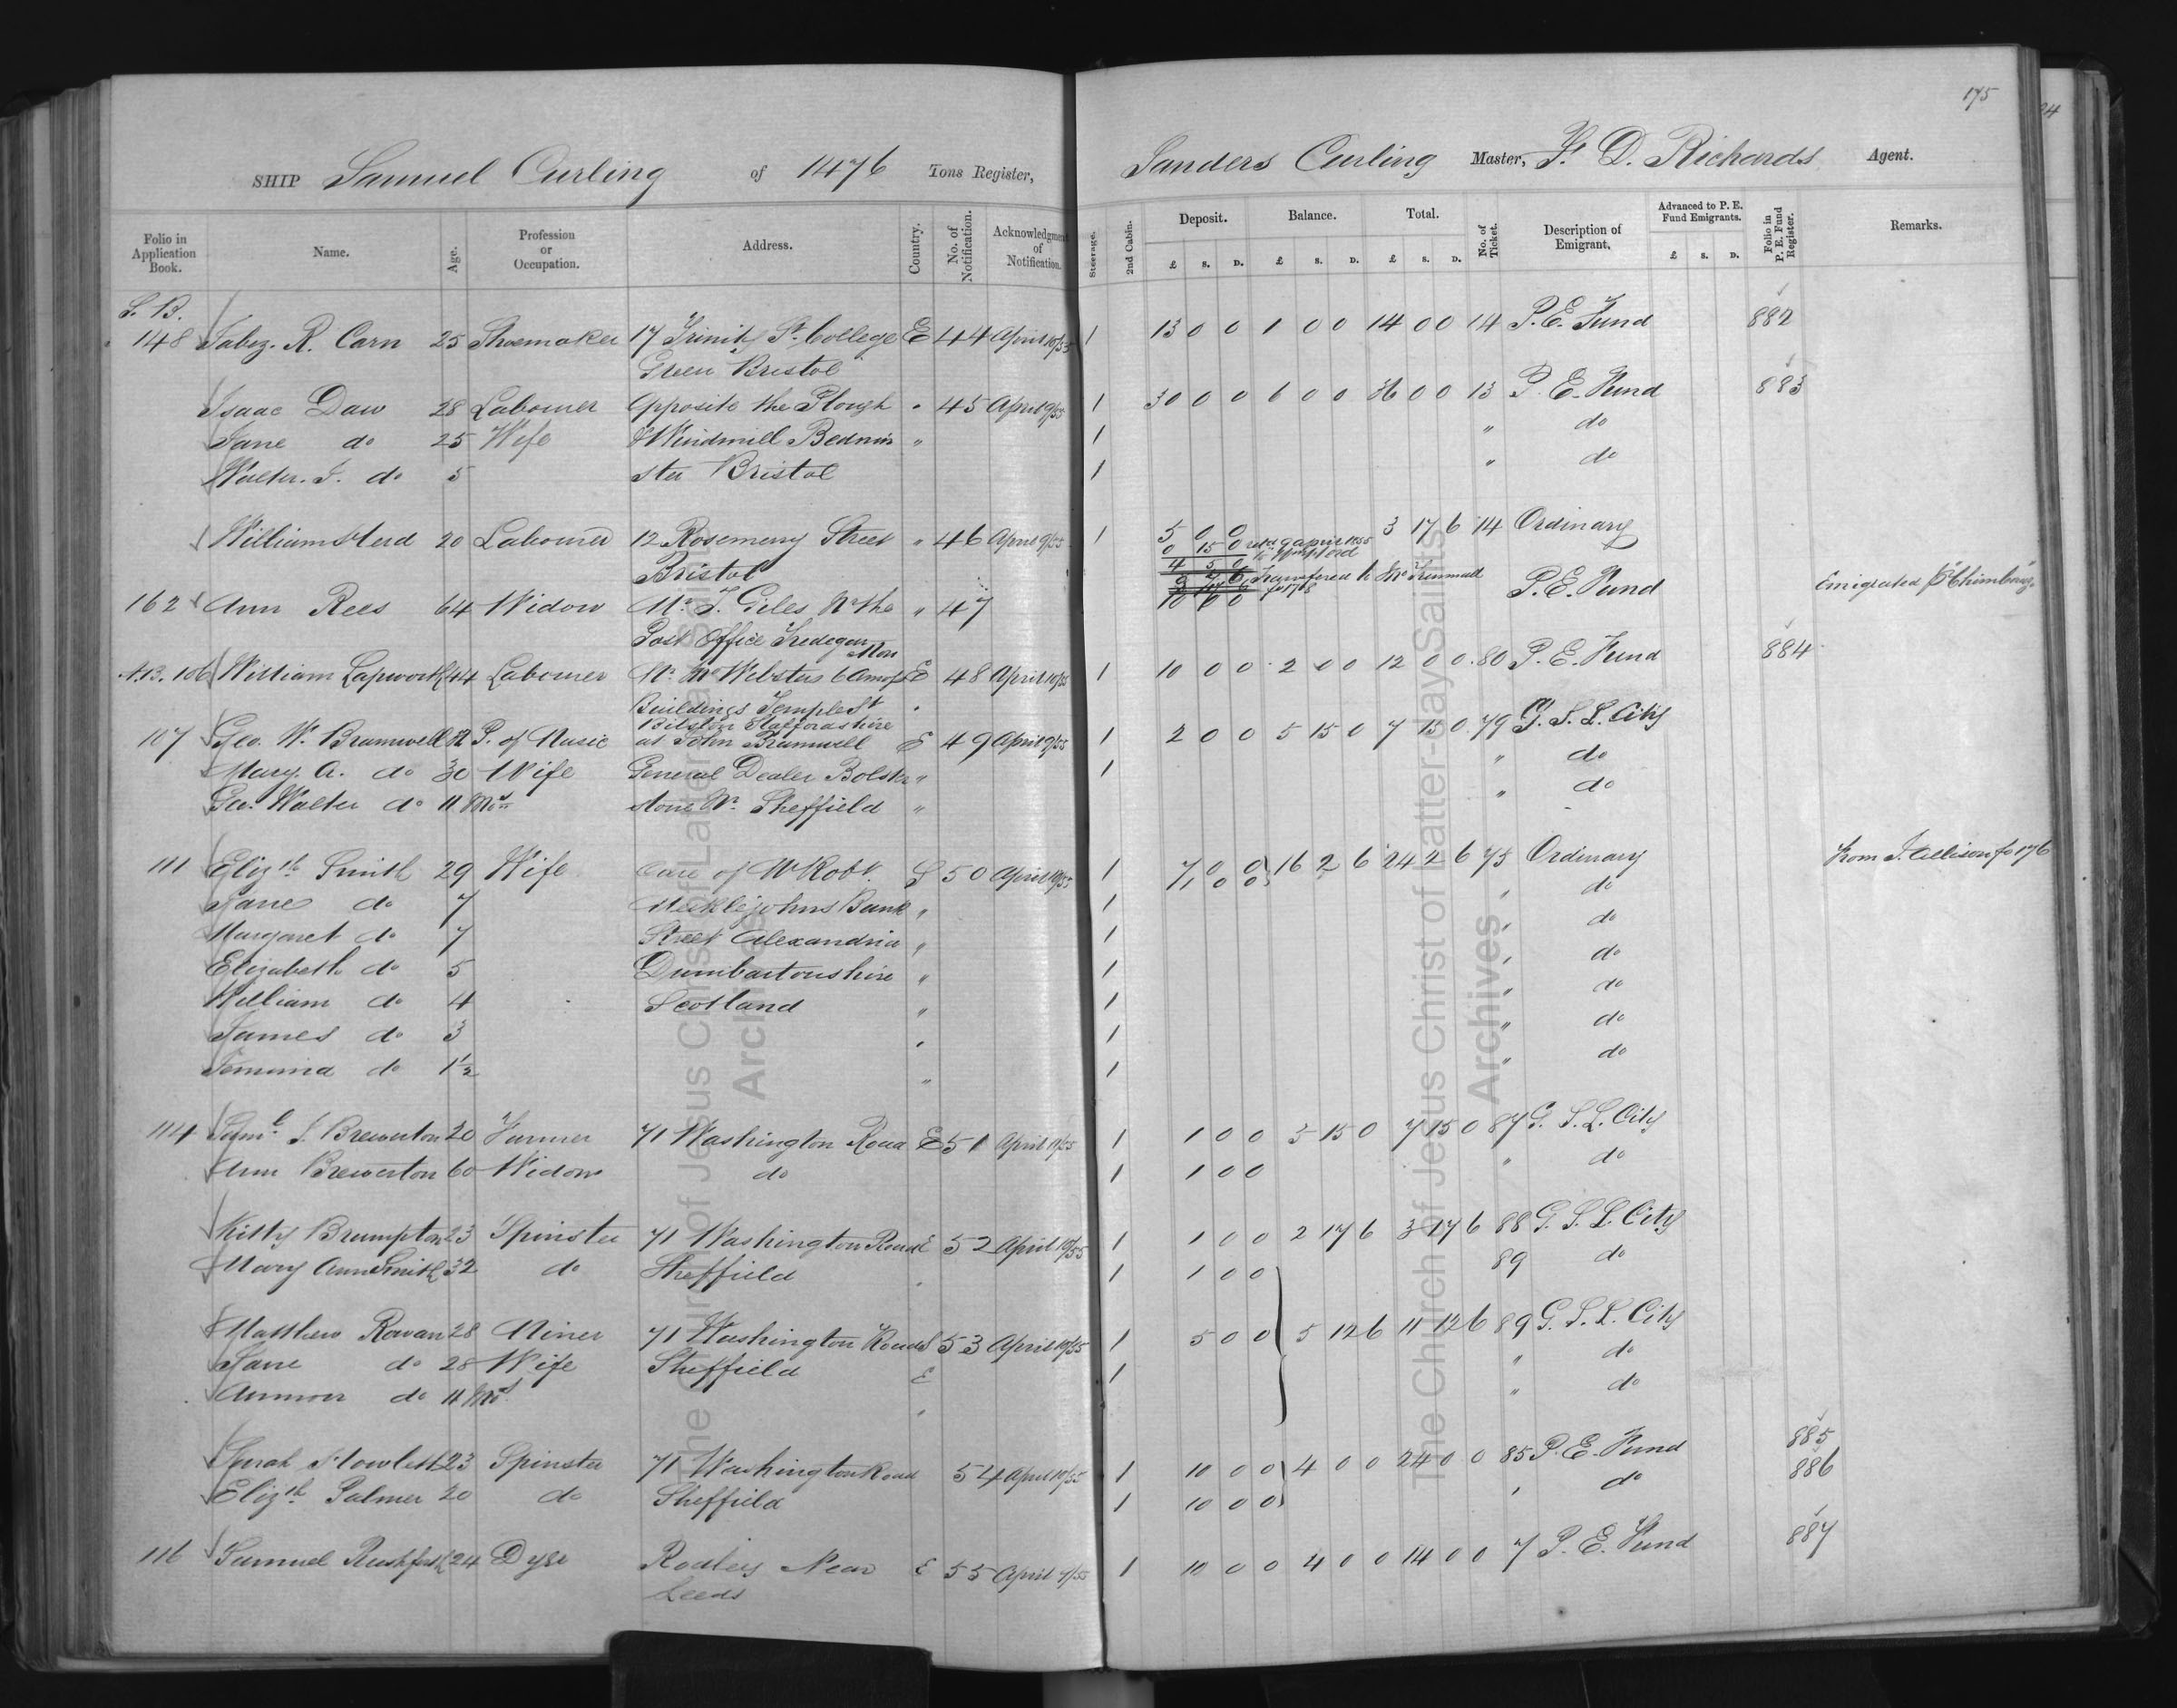 175
SHIP Samuel Curling of 1476 Tons Register, Sanders Curling Master, F. D. Richards Agent.
Folio in Application Book. Name. Age. Profession or Occupation. Address. Country. No. of Notification. Acknowledgment of Notification. Steerage. 2nd Cabin. Deposit. £ S. D. Balance. £ S. D. Total. £ S. D. No. of Ticket. Description of Emigrant. Advanced to P. E. Fund Emigrants. £ S. D. Folio in P. E. Fund Register. Remarks.
S. B.
148 Jabez. R. Carn 25 Shoemaker 17 Trinity St. College E 44 April 10/55 1 13 0 0 1 0 0 14 0 0 14 P. E. Fund 882
Green Bristol
Isaac Daw 28 Labourer Opposite the Plough " 45 April 9/55 1 30 0 0 6 0 0 36 0 0 13 P. E. Fund 883
Jane do 25 Wife & Windmill Bedmin " 1 " do
Walter. J. do 5 ster Bristol 1 " do
William Herd 20 Labourer 12 Rosemary Street " 46 April 9/55 1 5 0 0 3 17 6 14 Ordinary
0 15 0 9 April 1855
Bristol 4 5 0
162 Ann Rees 64 Widow Mr. J. Giles Nr the " 47 10 0 0 P. E. Fund Emigrated Chimborazo
Post Office Tredegar Mon
N.B. 106 William Lapworth 44 Labourer Mr. Websters 6 E 48 April 10/55 1 10 0 0 2 0 0 12 0 0 80 P. E. Fund 884
Buildings Temple St
Bilston Staffordshire
107 Geo. W. Bramwell P. of Music at John Bramwell E 49 April 9/55 1 2 0 0 5 15 0 7 15 0 79 G. S. L. City
Mary. A. do 30 Wife General Dealer Bolster " 1 " do
Geo. Walter do 11 Mos stone Nr. Sheffield " " do
111 Elizth Smith 29 Wife Care of Mr Robt. S 50 April 10/55 1 7 0 0 16 2 6 24 2 6 75 Ordinary from J. Allison fo 176
1 0 0
Jane do 7 Meiklejohns Bank " 1 " do
Margaret do 7 Street Alexandria " 1 " do
Elizabeth do 5 Dumbartonshire " 1 " do
William do 4 Scotland " 1 " do
James do 3 " 1 " do
Jemima do 1½ " 1 " do
114 Saml S. Brewerton 20 Farmer 71 Washington Road E 51 April 11/55 1 1 0 0 5 15 0 7 15 0 87 G. S. L. City
Ann Brewerton 60 Widow do 1 1 0 0 " do
Kitty Brumpton 23 Spinster 71 Washington Road E 52 April 10/55 1 1 0 0 2 17 6 3 17 6 88 G. S. L. City
Mary Ann Smith 32 do Sheffield 1 1 0 0 89 do
Matthew Rowan 28 Miner 71 Washington Road S 53 April 10/55 1 5 0 0 5 12 6 11 12 6 89 G. S. L. City
Jane do 28 Wife Sheffield E 1 " do
do 11 Mos " " do
Sarah Howlett 23 Spinster 71 Washington Road 54 April 10/55 1 10 0 0 4 0 0 24 0 0 85 P. E. Fund 885
Elizth Palmer 20 do Sheffield 1 10 0 0 " do 886
116 Samuel Rushforth 24 Dyer Rodley Near E 55 April 9/55 1 10 0 0 4 0 0 14 0 0 7 P. E. Fund 887
Leeds
The Church of Jesus Christ of Latter-day Saints
Archives
The Church of Jesus Christ of Latter-day Saints
Archives